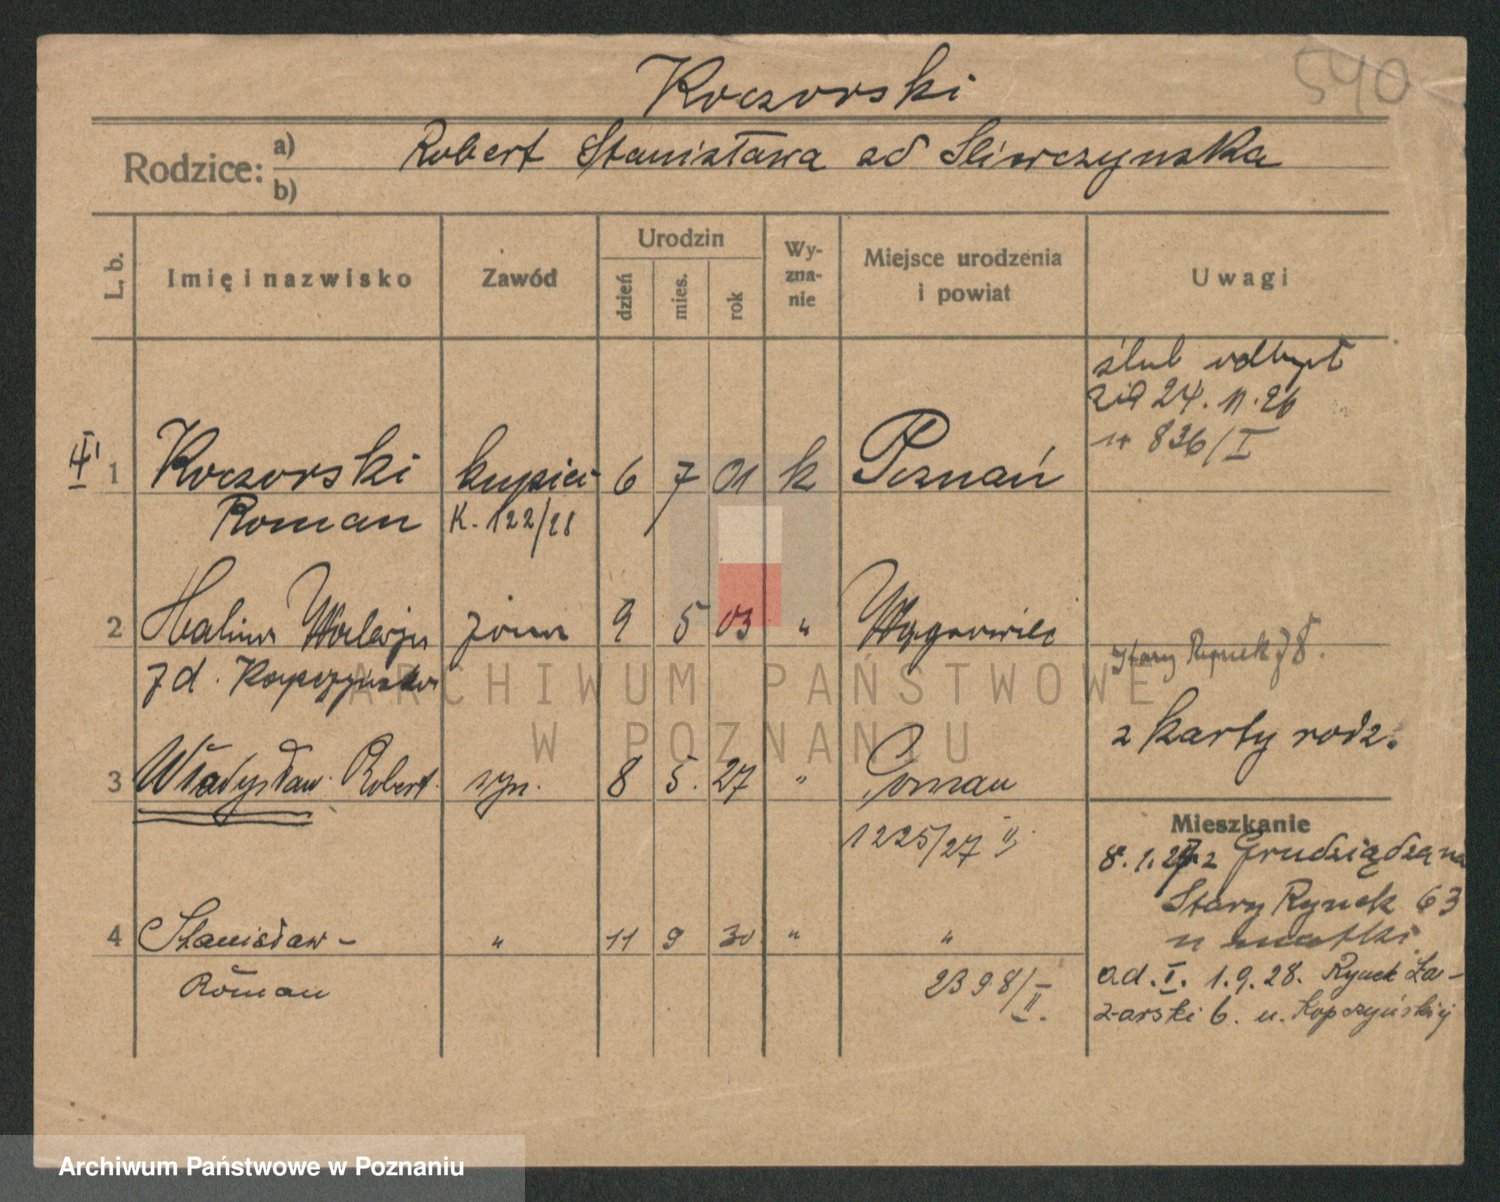 540
Koczorski
Rodzice: a) b)
Robert Stanisława ad Sliwczynska
L. b.
Imię i nazwisko
Zawód
Urodzin
dzień
mies.
rok
Wy-
zna-
nie
Miejsce urodzenia
i powiat
Uwagi
ślub odbył
się 24. 11. 26
n 836/I
1 Koczorski kupiec 6 7 01 k Poznań
Roman K. 122/28
2 Halina żona 9 5 03 " Wągrowiec
zd. Kopczyńska
Stary Rynek 78.
z karty rodz.
3 Władysław Robert syn. 8 5. 27 " Poznań
1225/27 II
Mieszkanie
8. 1. 27 z Grudziądza na
Stary Rynek 63
u matki
4 Stanisław - " 11 9 30 " "
Roman
2398/II.
od. I. 1. 9. 28. Rynek Ła-
zarski 6. u. Kopczyńskiej
ARCHIWUM PAŃSTWOWE
W POZNANIU
Archiwum Państwowe w Poznaniu